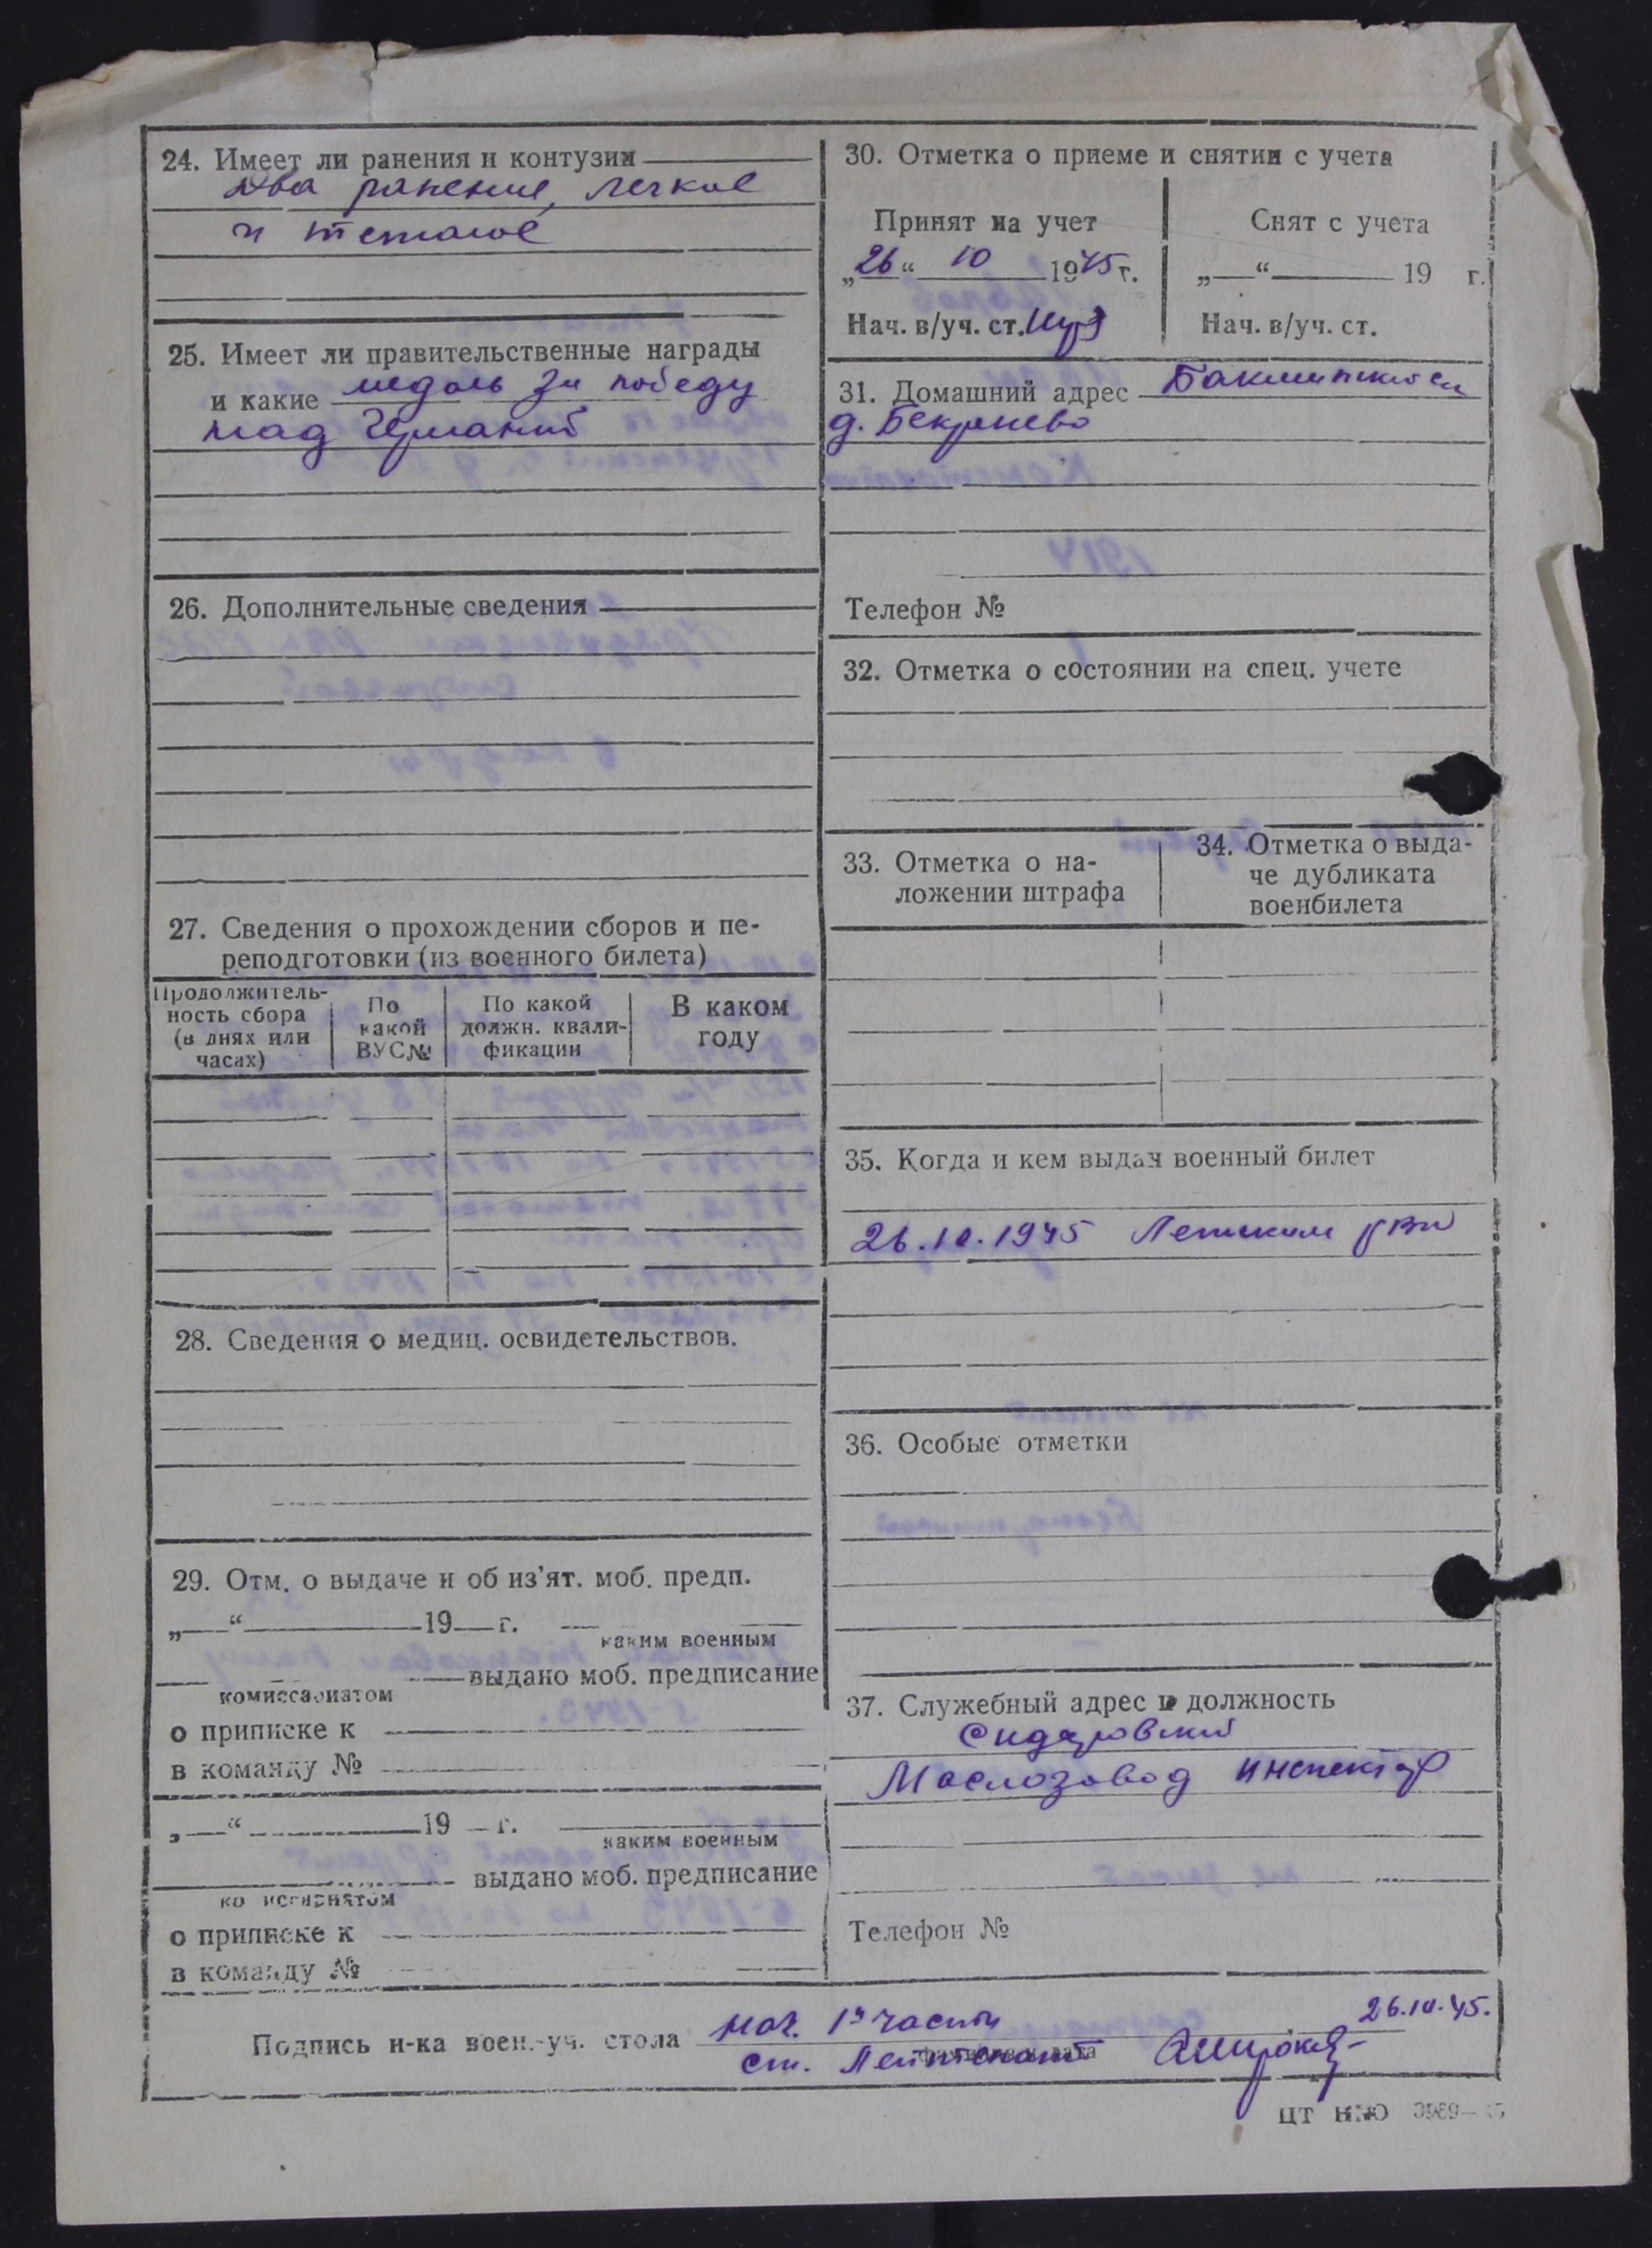 24. Имеет ли ранения и контузии
два ранение, легкое
и тяжолое
25. Имеет ли правительственные награды
и какие медаль за победу
над Германий
26. Дополнительные сведения
27. Сведения о прохождении сборов и пе-
реподготовки (из военного билета)
Продолжитель-
ность сбора
(в днях или
часах)
По
какой
ВУС№
По какой
должн. квали-
фикации
В каком
году
28. Сведения о медиц. освидетельствов.
29. Отм. о выдаче и об из'ят. моб. предп.
„ “ 19 г.
каким военным
выдано моб. предписание
комиссариатом
о приписке к
в команду №
„ “ 19 г.
каким военным
выдано моб. предписание
комиссариатом
о приписке к
в команду №
30. Отметка о приеме и снятии с учета
Принят на учет
„26“ 10 1945 г.
Нач. в/уч. ст.
Снят с учета
„ “ 19 г.
Нач. в/уч. ст.
31. Домашний адрес
д. Бекренево
Телефон №
32. Отметка о состоянии на спец. учете
33. Отметка о на-
ложении штрафа
34. Отметка о выда-
че дубликата
военбилета
35. Когда и кем выдан военный билет
26.10.1945 РВК
36. Особые отметки
37. Служебный адрес и должность
Сидоровский
Маслозавод инспектор
Телефон №
Подпись н-ка воен.-уч. стола нач. 1й части 26.10.45.
ст. Лейтенант
ЦТ НКО